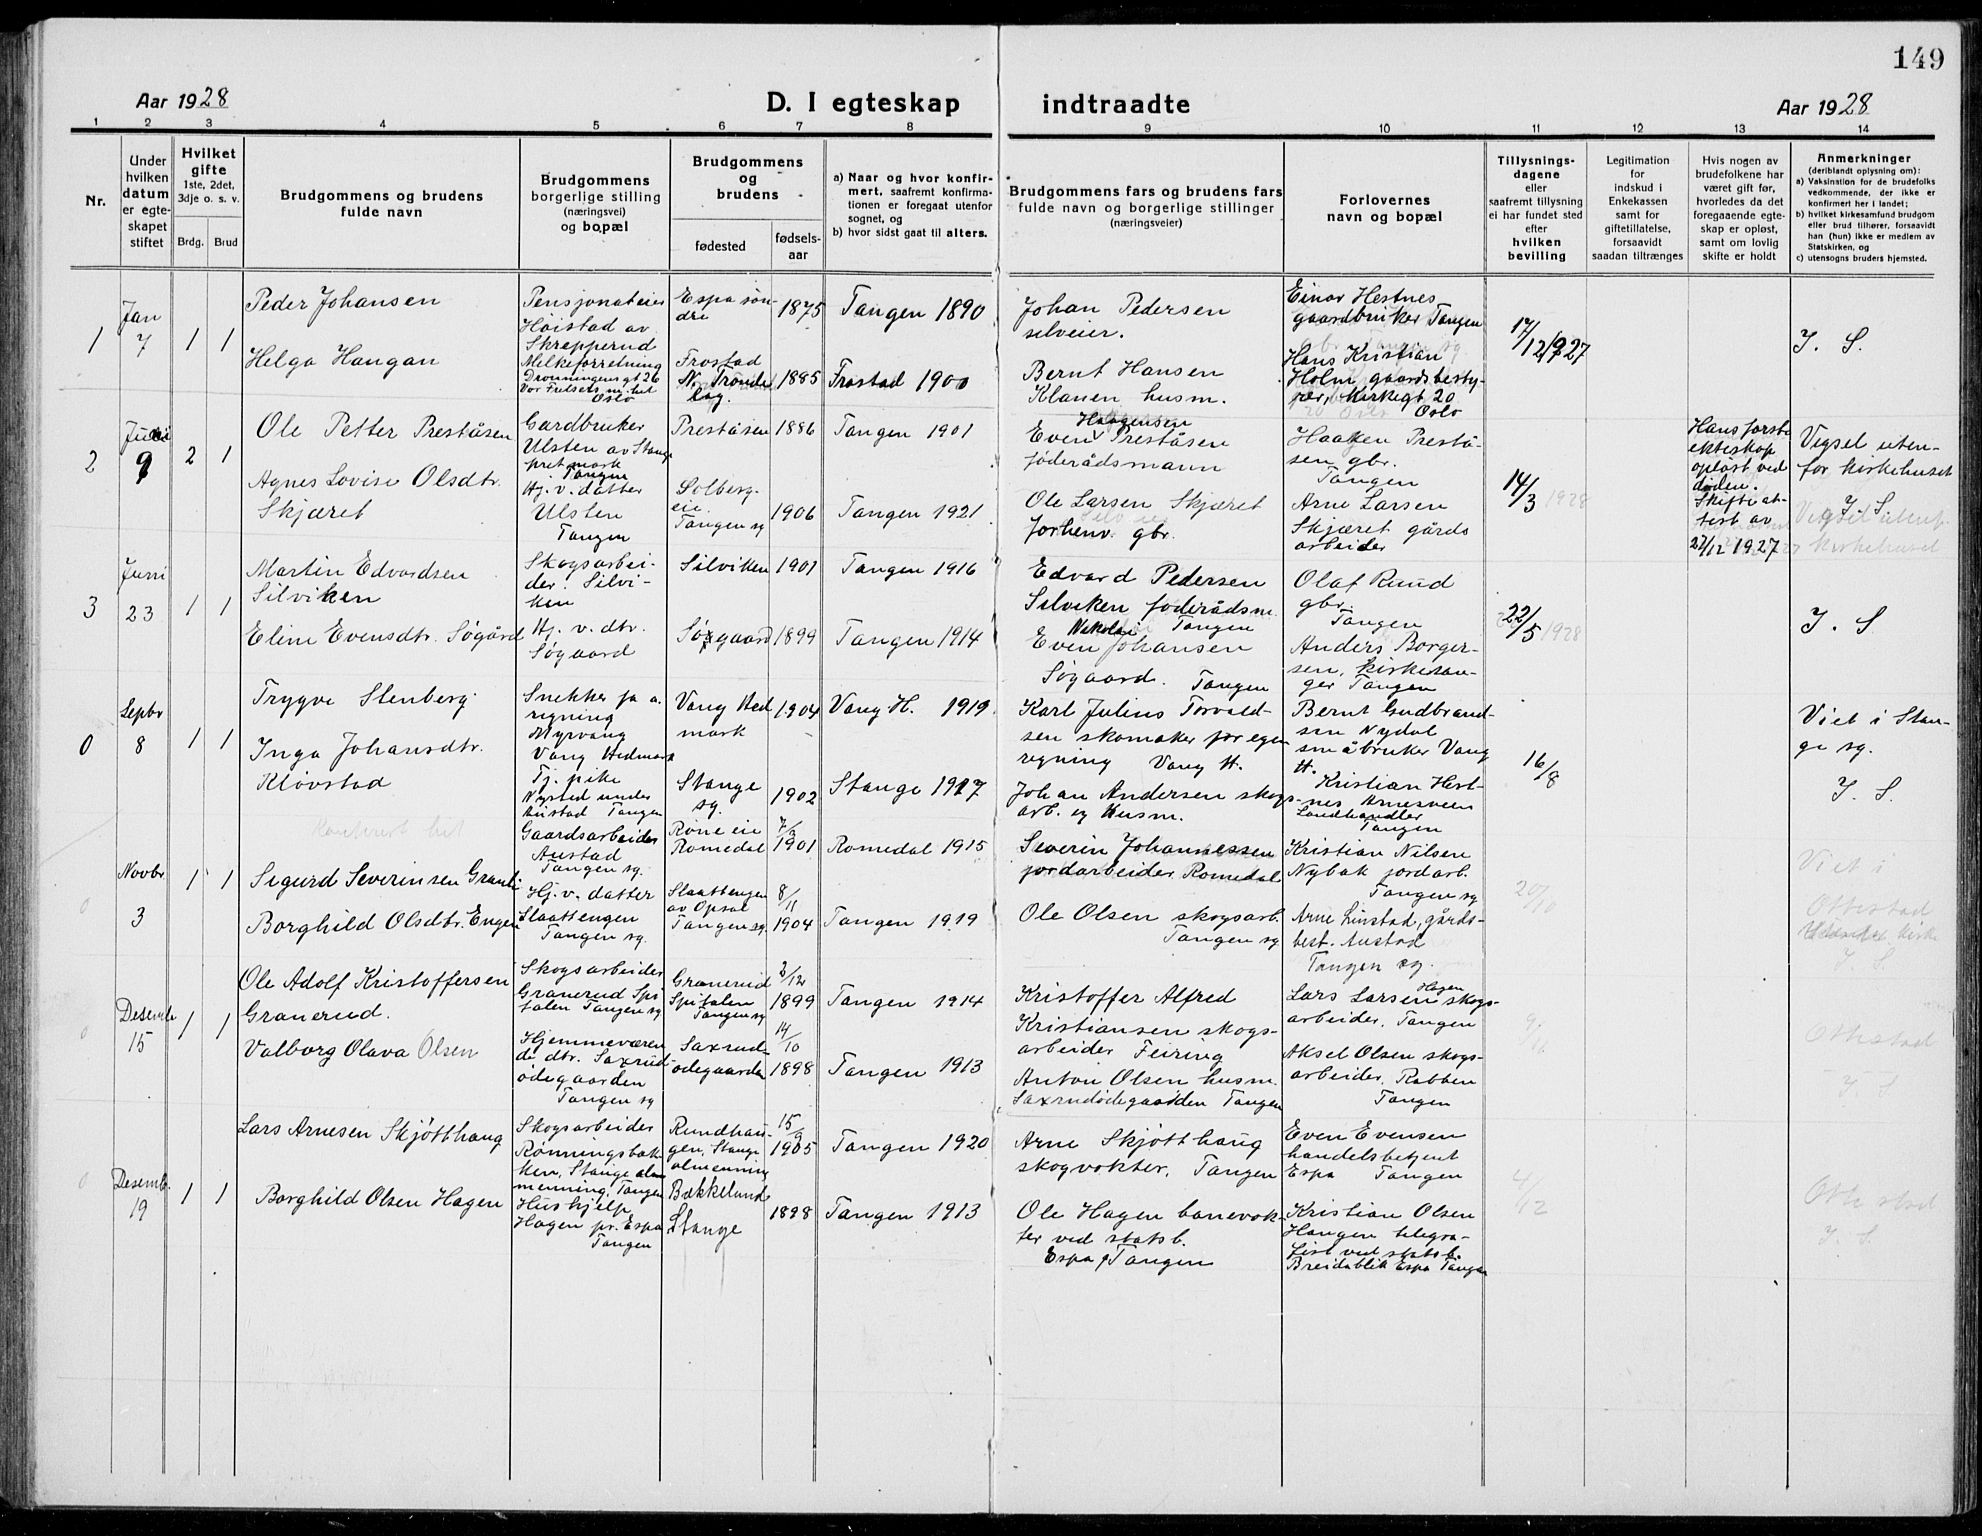 149
Aar 1928
D. I egteskap
indtraadte
Aar 1928
1 2 3 4 5 6 7 8 9 10 11 12 13 14
Nr.
Under
hvilken
datum
er egte-
skapet
stiftet
Hvilket
gifte
1ste, 2det,
3dje o. s. v.
Brdg. Brud
Brudgommens og brudens
fulde navn
Brudgommens
borgerlige stilling
(næringsvei)
og bopæl
Brudgommens
og
brudens
fødested
fødsels-
aar
a) Naar og hvor konfir-
mert, saafremt konfirma-
tionen er foregaat utenfor
sognet, og
b) hvor sidst gaat til alters.
Brudgommens fars og brudens fars
fulde navn og borgerlige stillinger
(næringsveier)
Forlovernes
navn og bopæl
Tillysnings-
dagene
eller
saafremt tillysning
ei har fundet sted
efter
hvilken
bevilling
Legitimation
for
indskud i
Enkekassen
samt for
giftetillatelse,
forsaavidt
saadan tiltrænges
Hvis nogen av
brudefolkene har
været gift før,
hvorledes da det
foregaaende egte-
skap er opløst,
samt om lovlig
skifte er holdt
Anmerkninger
(deriblandt oplysning om):
a) Vaksination for de brudefolks
vedkommende, der ikke er
konfirmert her i landet;
b) hvilket kirkesamfund brudgom
eller brud tilhører, forsaavidt
han (hun) ikke er medlem av
Statskirken, og
c) utensogns bruders hjemsted.
1
Jan
7
1 1
Peder Johansen
Helga Haugan
Pensjonateier
Høistad av
Skrepperud
Milkeforretning
Dronningensgt 26
Oslo
Espa søn-
dre
Frostad
N. Trønde
lag.
1875
1885
Tangen 1890
Frostad 1900
Johan Pedersen
selveier.
Bernt Hansen
Klanen husm.
Einar Hestnes
gaardbruker Tangen
Hans Kristian
Holm gaardsbesty-
rer, Kirkegt 20
Oslo
17/12 1927
I. S.
2
Juni
9
2 1
Ole Petter Preståsen
Agnes Lovise Olsdtr.
Skjæret
Gardbruker
Ulsten av Stange
prstmark
Tangen
Hj. v. datter
Ulsten
Tangen
Preståsen
Solberg-
eie.
Tangen sg
1886
1906
Tangen 1901
Tangen 1921
Haagensen
Even Preståsen
føderådsmann
Ole Larsen Skjæret
forhenv. gbr.
Haaken Prestå-
sen gbr.
Tangen
Arne Larsen
Skjæret gårds
arbeider
14/3 1928
Hans første
ekteskap
opløst ved
døden.
Skifteat-
test av
27/12 1927
Vigsel uten-
for kirkehuset
I. S.
3
Juni
23
1 1
Martin Edvardsen
Silviken
Eline Evensdtr. Søgård
Skogsarbei-
der. Silvi-
ken
Hj. v. dtr.
Søgaard
Silviken
Søgaard
1901
1899
Tangen 1916
Tangen 1914
Edvard Pedersen
Silviken føderådsm.
Tangen
Nikolai
Even Johansen
Søgaard. Tangen
Olaf Ruud
gbr.
Tangen
Anders Borger-
sen, kirkesan-
ger Tangen
22/5 1928
I. S.
0
Sepbr
8
1 1
Trygve Stenberg
Inga Johansdtr.
Kløvstad
Snekker for e.
regning
Myrvang
Vang Hedmark
Tj. pike
Nysted under
Austad Tangen
Vang Hed
mark
Stange
sg.
1904
1902
Vang H. 1919
Stange 1917
Karl Julius Torvald-
sen skomaker for egen
regning Vang H.
Johan Andersen skogs-
arb. og Husm.
Bernt Gudbrand-
sen Nydal
småbruker Vang
H.
Kristian Hest-
nes Arnesveen
Landhandler
Tangen
16/8
Viet i Stan-
ge sg.
I. S.
0
Novbr
3
1 1
Sigurd Severinsen Granli
Borghild Olsdtr. Engen
Gaardsarbeider
Austad
Tangen sg.
Hj. v. datter
Slaattengen
Tangen sg.
Røne eie
Romedal
Slaattengen
av Opsal
Tangen sg.
1901
8/11
1904
Romedal 1915
Tangen 1919
Severin Johannessen
jordarbeider Romedal
Ole Olsen skogsarb.
Tangen sg
Kristian Nilsen
Nybak jordarb.
Tangen sg
Arne Linstad, gårds-
best. Austad
Tangen sg.
20/10
Viet i
Ottestad
kirke
I. S.
0
Desemb
15
1 1
Ole Adolf Kristoffersen
Granerud.
Valborg Olava Olsen
Skogsarbeider
Granerud Spi
talen Tangen sg
Hjemmeværen
de dtr. Saxrud-
ødegaarden
Tangen sg
Granerud
Spitalen
Tangen sg
Saxrud-
ødegaarden
1899
14/10
1898
Tangen 1914
Tangen 1913
Kristoffer Alfred
Kristiansen skogs-
arbeider Feiring
Anton Olsen husm.
Saxrudødegaarden Tangen
Hagen
Lars Larsen skogs-
arbeider. Tangen
Aksel Olsen skogs-
arbeider. Rabben
Tangen
Ottestad
I. S.
0
Desemb.
19
1 1
Lars Arnesen Skjøtthaug
Borghild Olsen Hagen
Skogsarbeider
Rønningsbak-
ken, Stange alm
menning. Tangen
Hushjelp
Hagen pr. Espa
Tangen
Rundhau-
gen, Stange
almenning
Bækkelund
Stange
15/9
1905
1898
Tangen 1920
Tangen 1913
Arne Skjøtthaug
skogvokter, Tangen
Ole Hagen banevok-
ter ved statsb.
Espa, Tangen
Even Evensen
handelsbetjent
Espa Tangen
Kristian Olsen
Haugen telegra-
fist ved statsb.
Breidablik Espa Tangen
4/12
Ottestad
I. S.